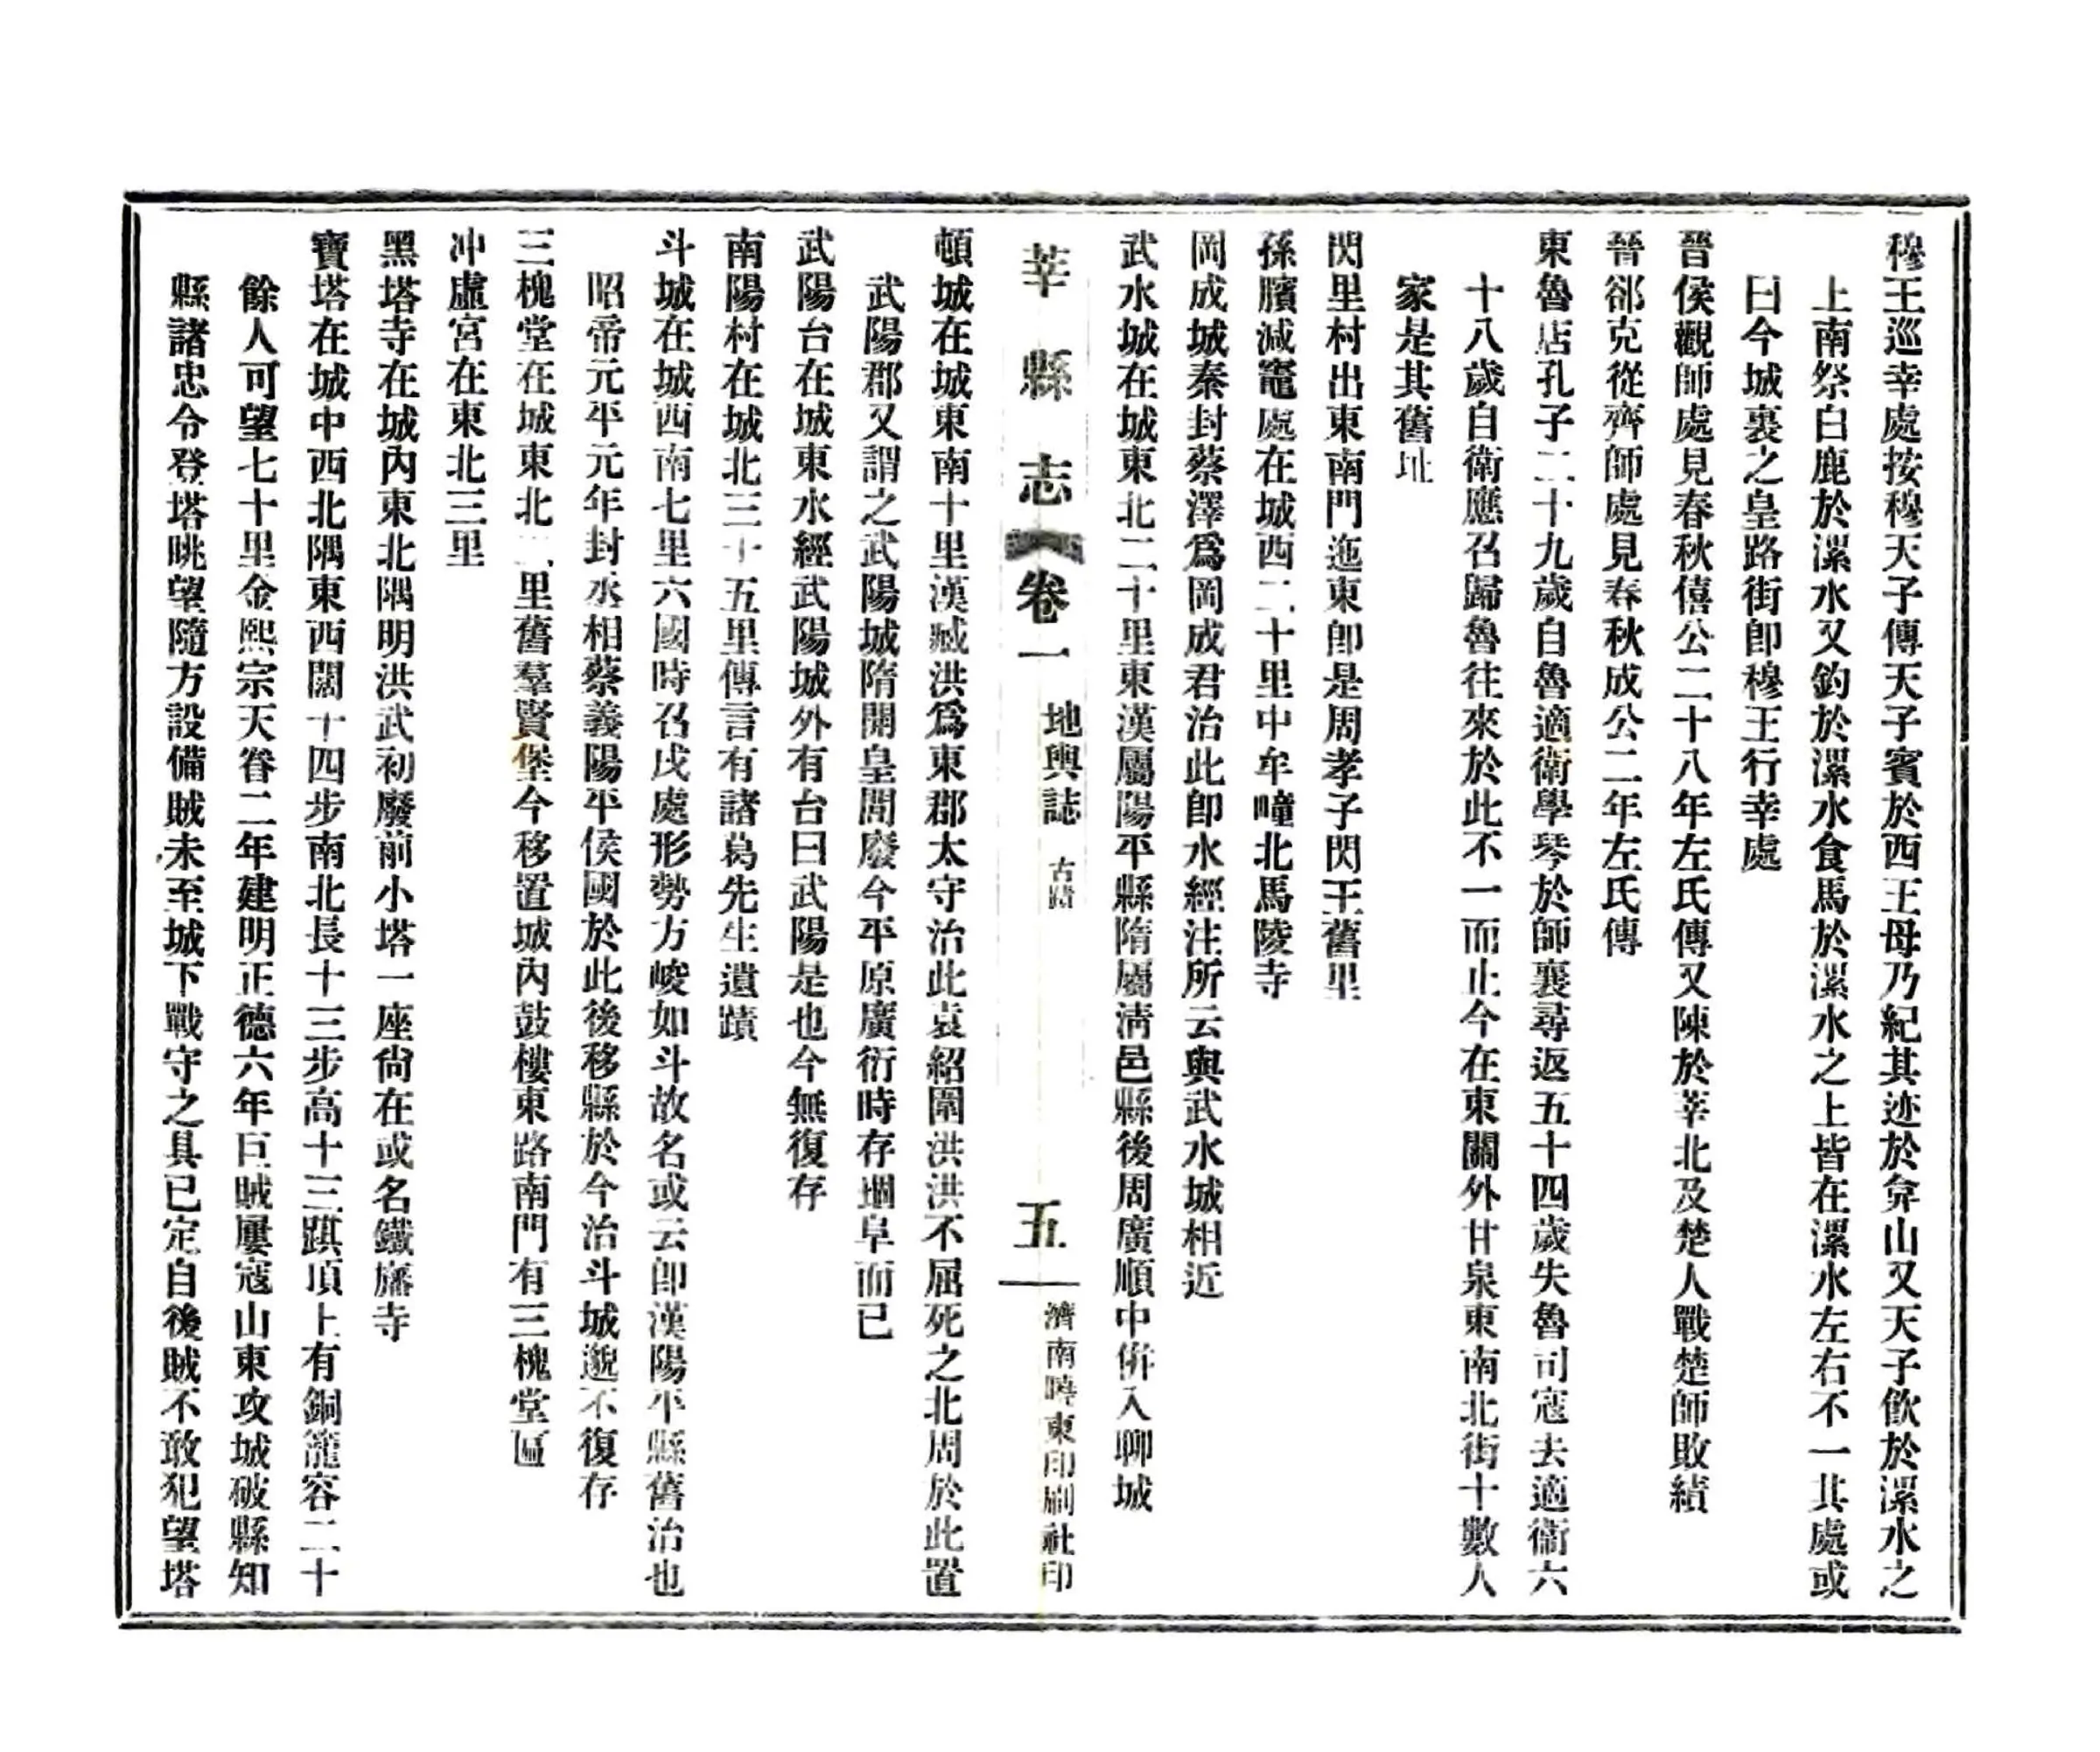 穆王巡幸處按穆天子傳天子賓於西王母乃紀其迹於弇山又天子飲於漯水之
上南祭白鹿於漯水又釣於漯水食馬於漯水之上皆在漯水左右不一其處或
曰今城裏之皇路街卽穆王行幸處
晉侯觀師處見春秋僖公二十八年左氏傳又陳於莘北及楚人戰楚師敗績
晉郤克從齊師處見春秋成公二年左氏傳
東魯店孔子二十九歲自魯適衛學琴於師襄尋返五十四歲失魯司寇去適衞六
十八歲自衛應召歸魯往來於此不一而止今在東關外甘泉東南北街十數人
家是其舊址
閃里村出東南門迤東卽是周孝子閃王舊里
孫臏減竈處在城西二十里中牟疃北馬陵寺
岡成城秦封蔡澤爲岡成君治此卽水經注所云與武水城相近
武水城在城東北二十里東漢屬陽平縣隋屬淸邑縣後周廣順中倂入聊城
莘縣志 卷一 地輿誌 古蹟 五 濟南曉東印刷社印
頓城在城東南十里漢臧洪爲東郡太守治此袁紹圍洪洪不屈死之北周於此置
武陽郡又謂之武陽城隋開皇間廢今平原廣衍時存堌阜而已
武陽台在城東水經武陽城外有台曰武陽是也今無復存
南陽村在城北三十五里傳言有諸葛先生遺蹟
斗城在城西南七里六國時召戍處形勢方峻如斗故名或云卽漢陽平縣舊治也
昭帝元平元年封丞相蔡義陽平侯國於此後移縣於今治斗城邈不復存
三槐堂在城東北二里舊羣賢堡今移置城內鼓樓東路南門有三槐堂匾
冲虛宮在東北三里
黑塔寺在城內東北隅明洪武初廢前小塔一座尙在或名鐵旛寺
寶塔在城中西北隅東西闊十四步南北長十三步高十三踑項上有銅籠容二十
餘人可望七十里金熙宗天眷二年建明正德六年巨賊屢寇山東攻城破縣知
縣諸忠令登塔眺望隨方設備賊未至城下戰守之具已定自後賊不敢犯望塔